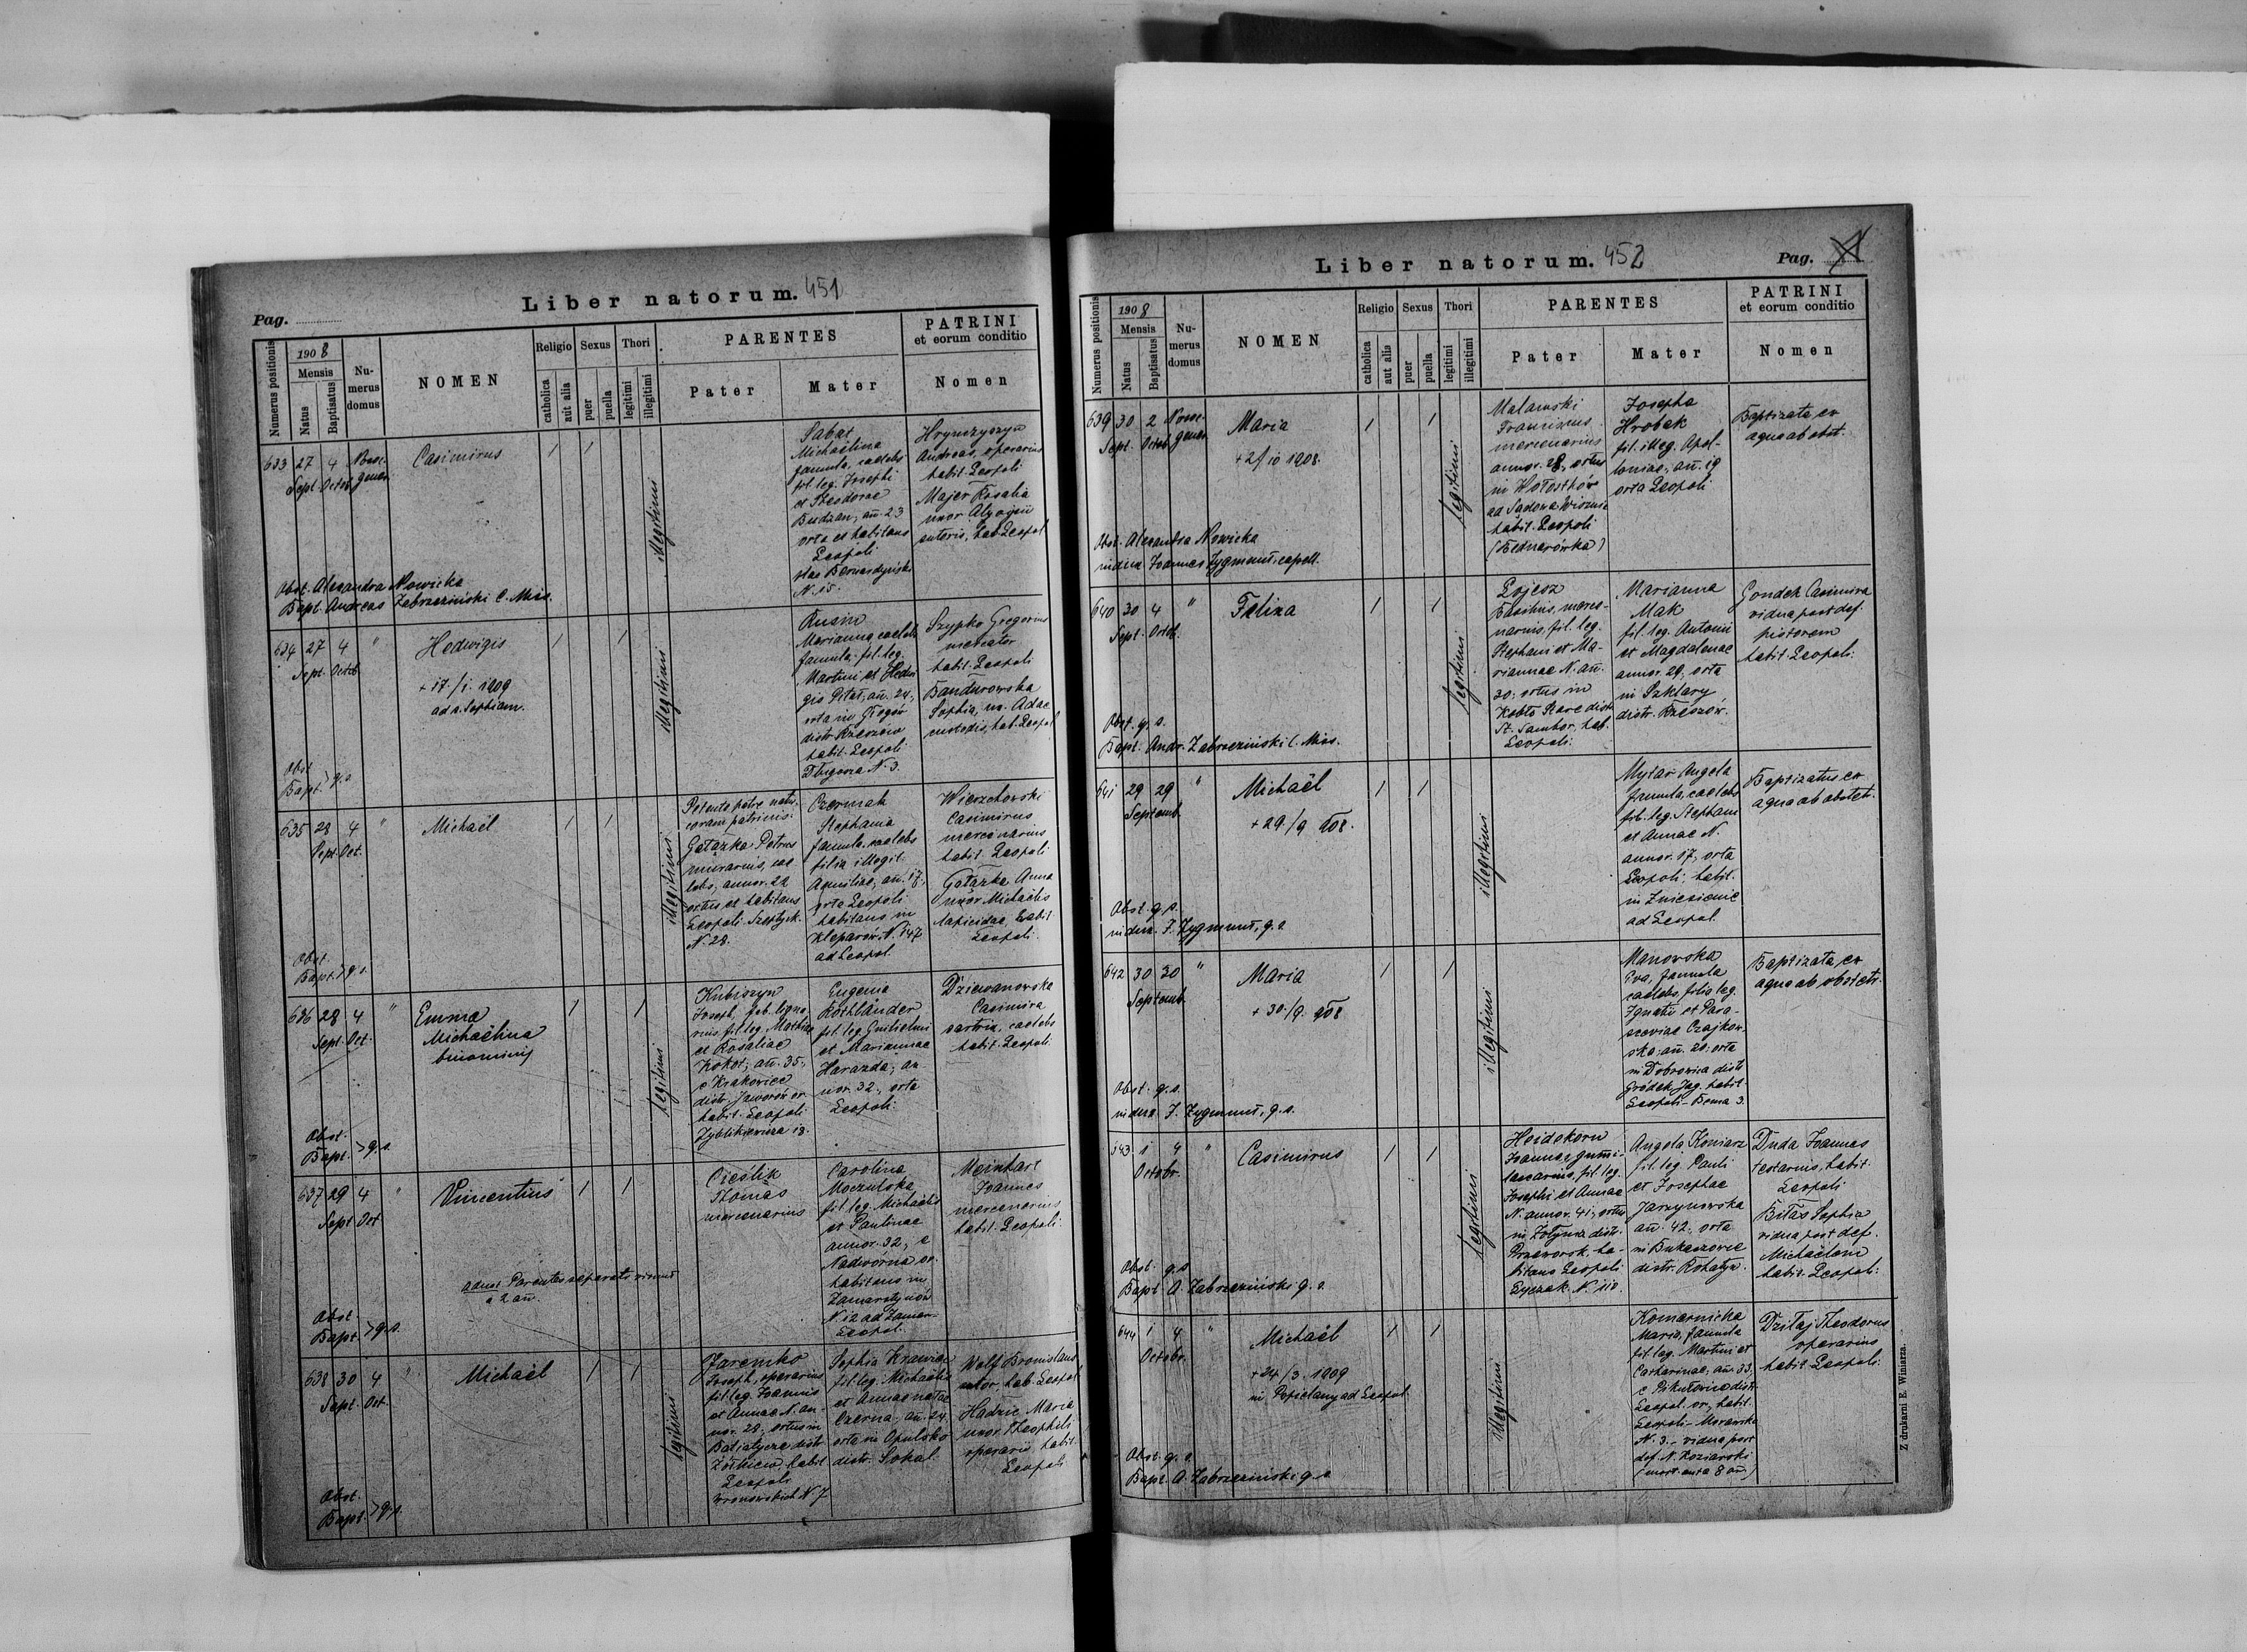 Pag.
Liber natorum. 451
Numerus positionis
1908
Mensis
Natus
Baptisatus
Nu-
merus
domus
NOMEN
Religio
catholica
aut alia
Sexus
puer
puella
Thori
legitimi
illegitimi
PARENTES
Pater
Mater
PATRINI
et eorum conditio
Nomen
633 27 4
Sept. Octob.
Casimirus
illegitimi
Sabat
Michaëlina
famula, caelebs
fil. leg. Josephi
et Theodorae
Budzan, añ. 23
orta et habitans
Leopoli
N. 15.
Hrynczyszyn
Andreas, operarius
habit. Leopoli
Majer Rosalia
uxor
sutoris, hab. Leopol
Obst. Alexandra Nowicka
Bapt. Andreas Zabrzeziński C. Miss.
634 27 4 "
Sept. Octob.
Hedwigis
+ 17./1. 1909
ad s. Sophiam.
illegitimi
Rusin
Marianna, caelebs
famula, fil. leg.
Martini et Hedwi
gis añ. 24,
orta in Głogów
distr. Rzeszów
habit. Leopoli
N. 3.
Szypko Gregorius
mercator
habit. Leopoli
Bandurowska
Sophia, ux. Adae
custodis, hab. Leopol
Obst.
Bapt. > q. s.
635 28 4 "
Sept. Oct.
Michaël
illegitimi
Petente patre natu.
coram patrinis.
Gałązka Petrus
murarius, cae
lebs, annor. 22
ortus et habitans
Leopoli Szeptyck.
N. 28.
Czermak
Stephania
famula, caelebs
filia illegit.
añ. 17,
orta Leopoli
habitans in
Kleparów N. 147
ad Leopol.
Wierzchowski
Casimirus
mercenarius
habit. Leopoli
Gałązka Anna
uxor Michaëlis
lapicidae, habit
Leopoli.
Obst.
Bapt. > q. s.
636 28 4 "
Sept. Oct.
Emma
Michaëlina
binominis
legitimi
Kubiszyn
Joseph, fab. ligna
rius fil. leg. Mathiae
et Rosaliae
Kokot, añ. 35,
e Krakowiec
distr. Jaworów or.
habit. Leopoli
Zyblikiewicza 18.
Eugenia
Rothländer
fil. leg. Guilielmi
et Mariannae
Harazda, an-
nor. 32, orta
Leopoli.
Dziewanowska
Casimira
sartrix, caelebs
habit. Leopoli
Obst.
Bapt. > q. s.
637 29 4 "
Sept Oct.
Vincentius
adnot. Parentes separati vivunt
a 2 añ.
Cieślik
Thomas
mercenarius
Carolina
Moczulska
fil. leg. Michaëlis
et Paulinae
annor. 32, e
Nadwórna or.
habitans in
Zamarstynów
N. 12 ad
Leopol.
Meinhart
Joannes
mercenarius
habit. Leopoli.
Obst.
Bapt. > q. s.
638 30 4 "
Sept. Oct.
Michaël
legitimi
Jaremko
Joseph, operarius
fil. leg. Joannis
et Annae N. an-
nor. 28, ortus in
Batiatycze distr
Żółkiew, habit
Leopoli
Wronowskich N. 7
Sophia Krawiec
fil. leg. Michaëlis
et Annae natae
Czerna, añ. 24,
orta in Opulsko
distr. Sokal
Wolf Bronislaus
sutor, hab. Leopol
Maria
uxor Theophili
operarii, habit.
Leopoli
Obst.
Bapt. > q. s.
Liber natorum. 452
Pag.
Numerus positionis
1908
Mensis
Natus
Baptisatus
Nu-
merus
domus
NOMEN
Religio
catholica
aut alis
Sexus
puer
puella
Thori
legitimi
illegitimi
PARENTES
Pater
Mater
PATRINI
et eorum conditio
Nomen
639 30 2
Sept. Octob.
Maria
+ 2/10 1908.
legitimi
Malawski
Franciscus
mercenarius
annor. 28, ortus
in Hołosthów
ad Sądowa Wisznia
habit. Leopoli
(Bednarówka)
Josepha
Hrobak
fil. illeg. Apol-
loniae, añ. 19
orta Leopoli
Baptizata ex
aqua ab obst.
Obst. Alexandra Nowicka
Joannes Zygmunt, capell.
640 30 4 "
Sept. Octob.
Felixa
legitimi
Basilius, merce-
narius, fil. leg.
Stephani et Ma-
riannae N. añ.
30, ortus in
Stare distr
St. Sambor, hab.
Leopoli.
Marianna
Mak
fil. leg. Antonii
et Magdalenae
annor. 29, orta
in Szklary
distr. Rzeszów.
Gondek Casimira
vidua post def.
pistorem
habit. Leopoli.
Obst. q. s.
Bapt. Andr. Zabrzeziński C. Miss.
641 29 29 "
Septemb.
Michaël
+ 29./9 908.
illegitimi
Mytar Angela
famula, caelebs
fil. leg. Stephani
et Annae N.
annor. 17, orta
Leopoli, habit.
in Zniesienie
ad Leopol.
Baptizatus ex
aqua ab obstet.
Obst. q. s.
J. Zygmunt, q. s.
642 30 30 "
Septemb.
Maria
+ 30./9. 908
illegitimi
Manowska
Eva, famula
caelebs, filia leg.
Ignatii et Para-
sceviae Czajkow-
ska, añ. 20, orta
in Dobrowica distr
Gródek Jag. habit
Leopoli - Bema 3.
Baptizata ex
aqua ab obstetr.
Obst. q. s.
J. Zygmunt, q. s.
643 1 4 "
Octobr.
Casimirus
legitimi
Heidekorn
Joannes,
fil. leg.
Josephi et Annae
N. annor. 41, ortus
in Żołynia distr.
Przeworsk. ha-
bitans Leopoli
Łyczak. N. 110.
Angela Koniarz
fil. leg. Pauli
et Josephae
Jarzynowska
añ. 42, orta
in Bukaczowce
distr. Rohatyn.
Duda Joannes
habit.
Leopoli
Bitas Sophia
vidua post def.
Michaëlem
habit. Leopoli.
Obst. q. s
Bapt. A. Zabrzeziński q. s.
644 1 4 "
Octobr.
Michaël
+ 24/3. 1909
in ad Leopol
illegitimi
Komarnicka
Maria, famula
fil. leg. Martini et
Catharinae, añ. 33,
e Pikułowice distr
Leopol. or., habit.
Leopoli - Morawska
N. 3. - vidua post
def. N. Koziarski
(mort. anta 8 añ.)
Theodorus
operarius
habit. Leopoli.
Obst. q. s.
Bapt. A. Zabrzeziński q. s
Z drukarni E. Winiarza.